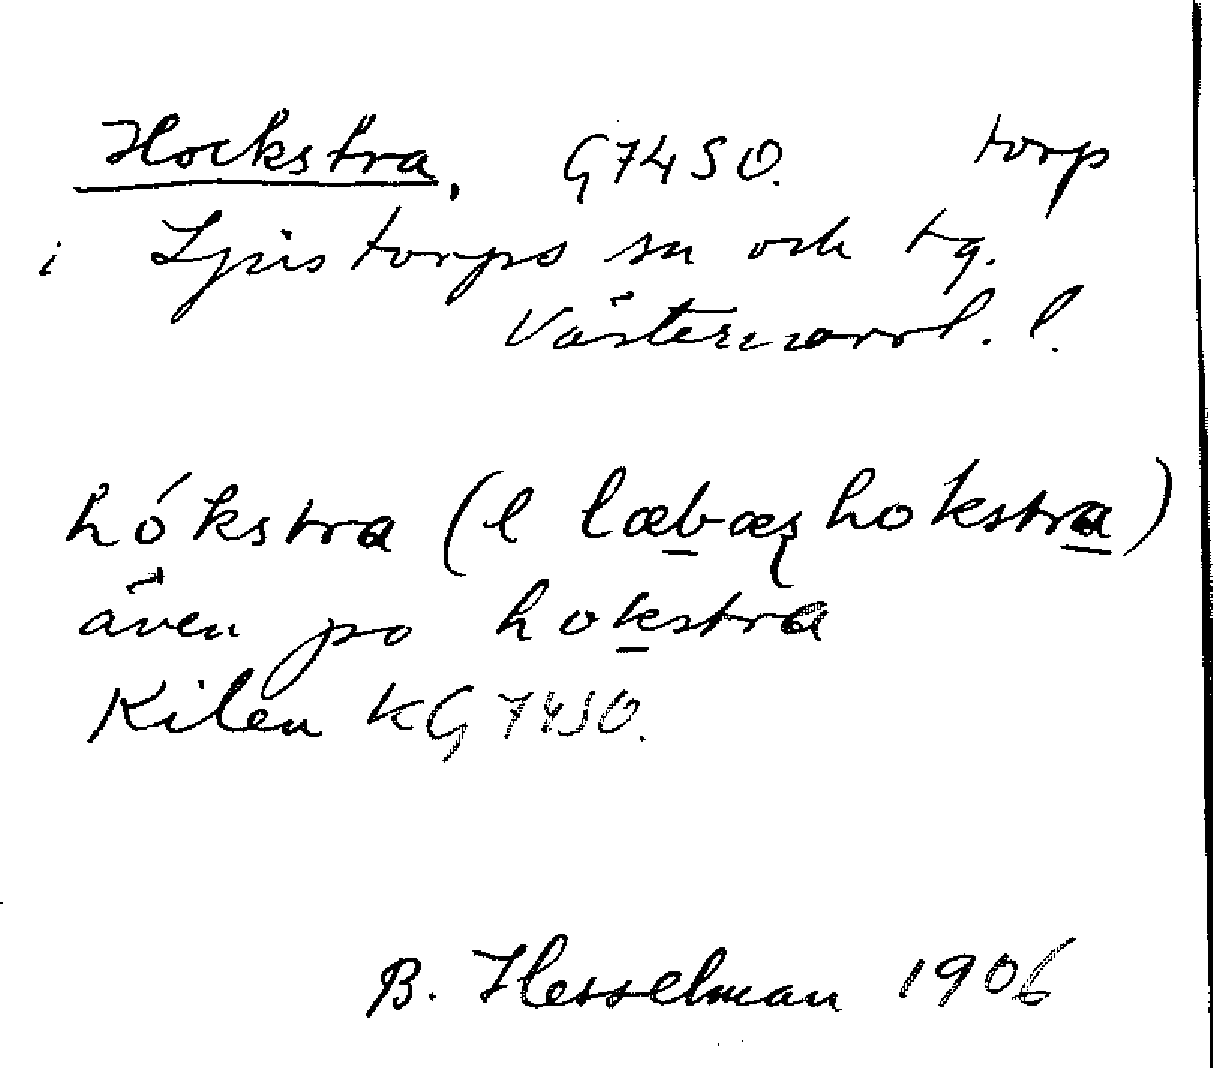 Hockstra, G74SO. torp
i Ljustorps sn och tg.
Västernorrl. l.
hókstra (l læbæs hokstra)
även po hokstra
Kilen KG74SO.
B. Hesselman 1906